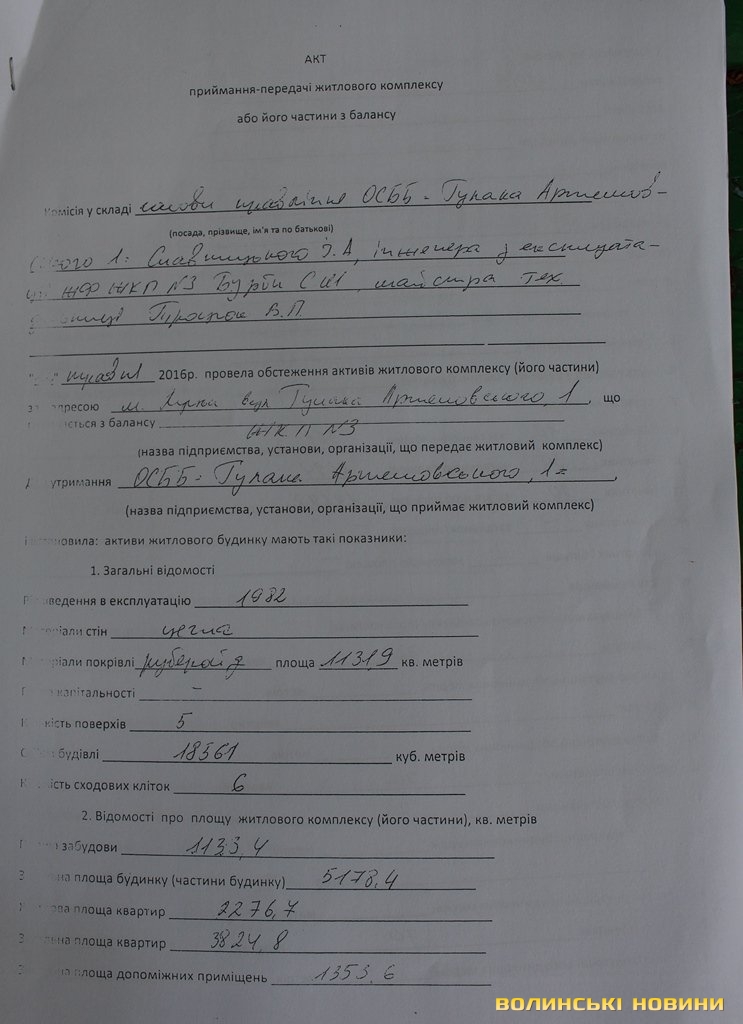 АКТ
приймання-передачі житлового комплексу
або його частини з балансу
Комісія у складі голови правління ОСББ "Гулака Артемов-
(посада, прізвище, ім'я та по батькові)
ського 1" І.А, інженера з експлуата-
ЖФ ЖКП №3 майстра тех.
В.П.
2016р. провела обстеження активів житлового комплексу (його частини)
адресою м. вул Гулака Артемовського, 1, що
ається з балансу ЖКП №3
(назва підприємства, установи, організації, що передає житловий комплекс)
утримання ОСББ "Гулака Артемовського, 1"
(назва підприємства, установи, організації, що приймає житловий комплекс)
овила: активи житлового будинку мають такі показники:
1. Загальні відомості
ведення в експлуатацію 1982
ріали стін цегла
ріали покрівлі руберойд площа 1131,9 кв. метрів
капітальності –
кість поверхів 5
будівлі 18561 куб. метрів
ість сходових кліток 6
2. Відомості про площу житлового комплексу (його частини), кв. метрів
забудови 1133,4
на площа будинку (частини будинку) 5178,4
ова площа квартир 2276,7
на площа квартир 3824,8
на площа допоміжних приміщень 1353,6
ВОЛИНСЬКІ НОВИНИ